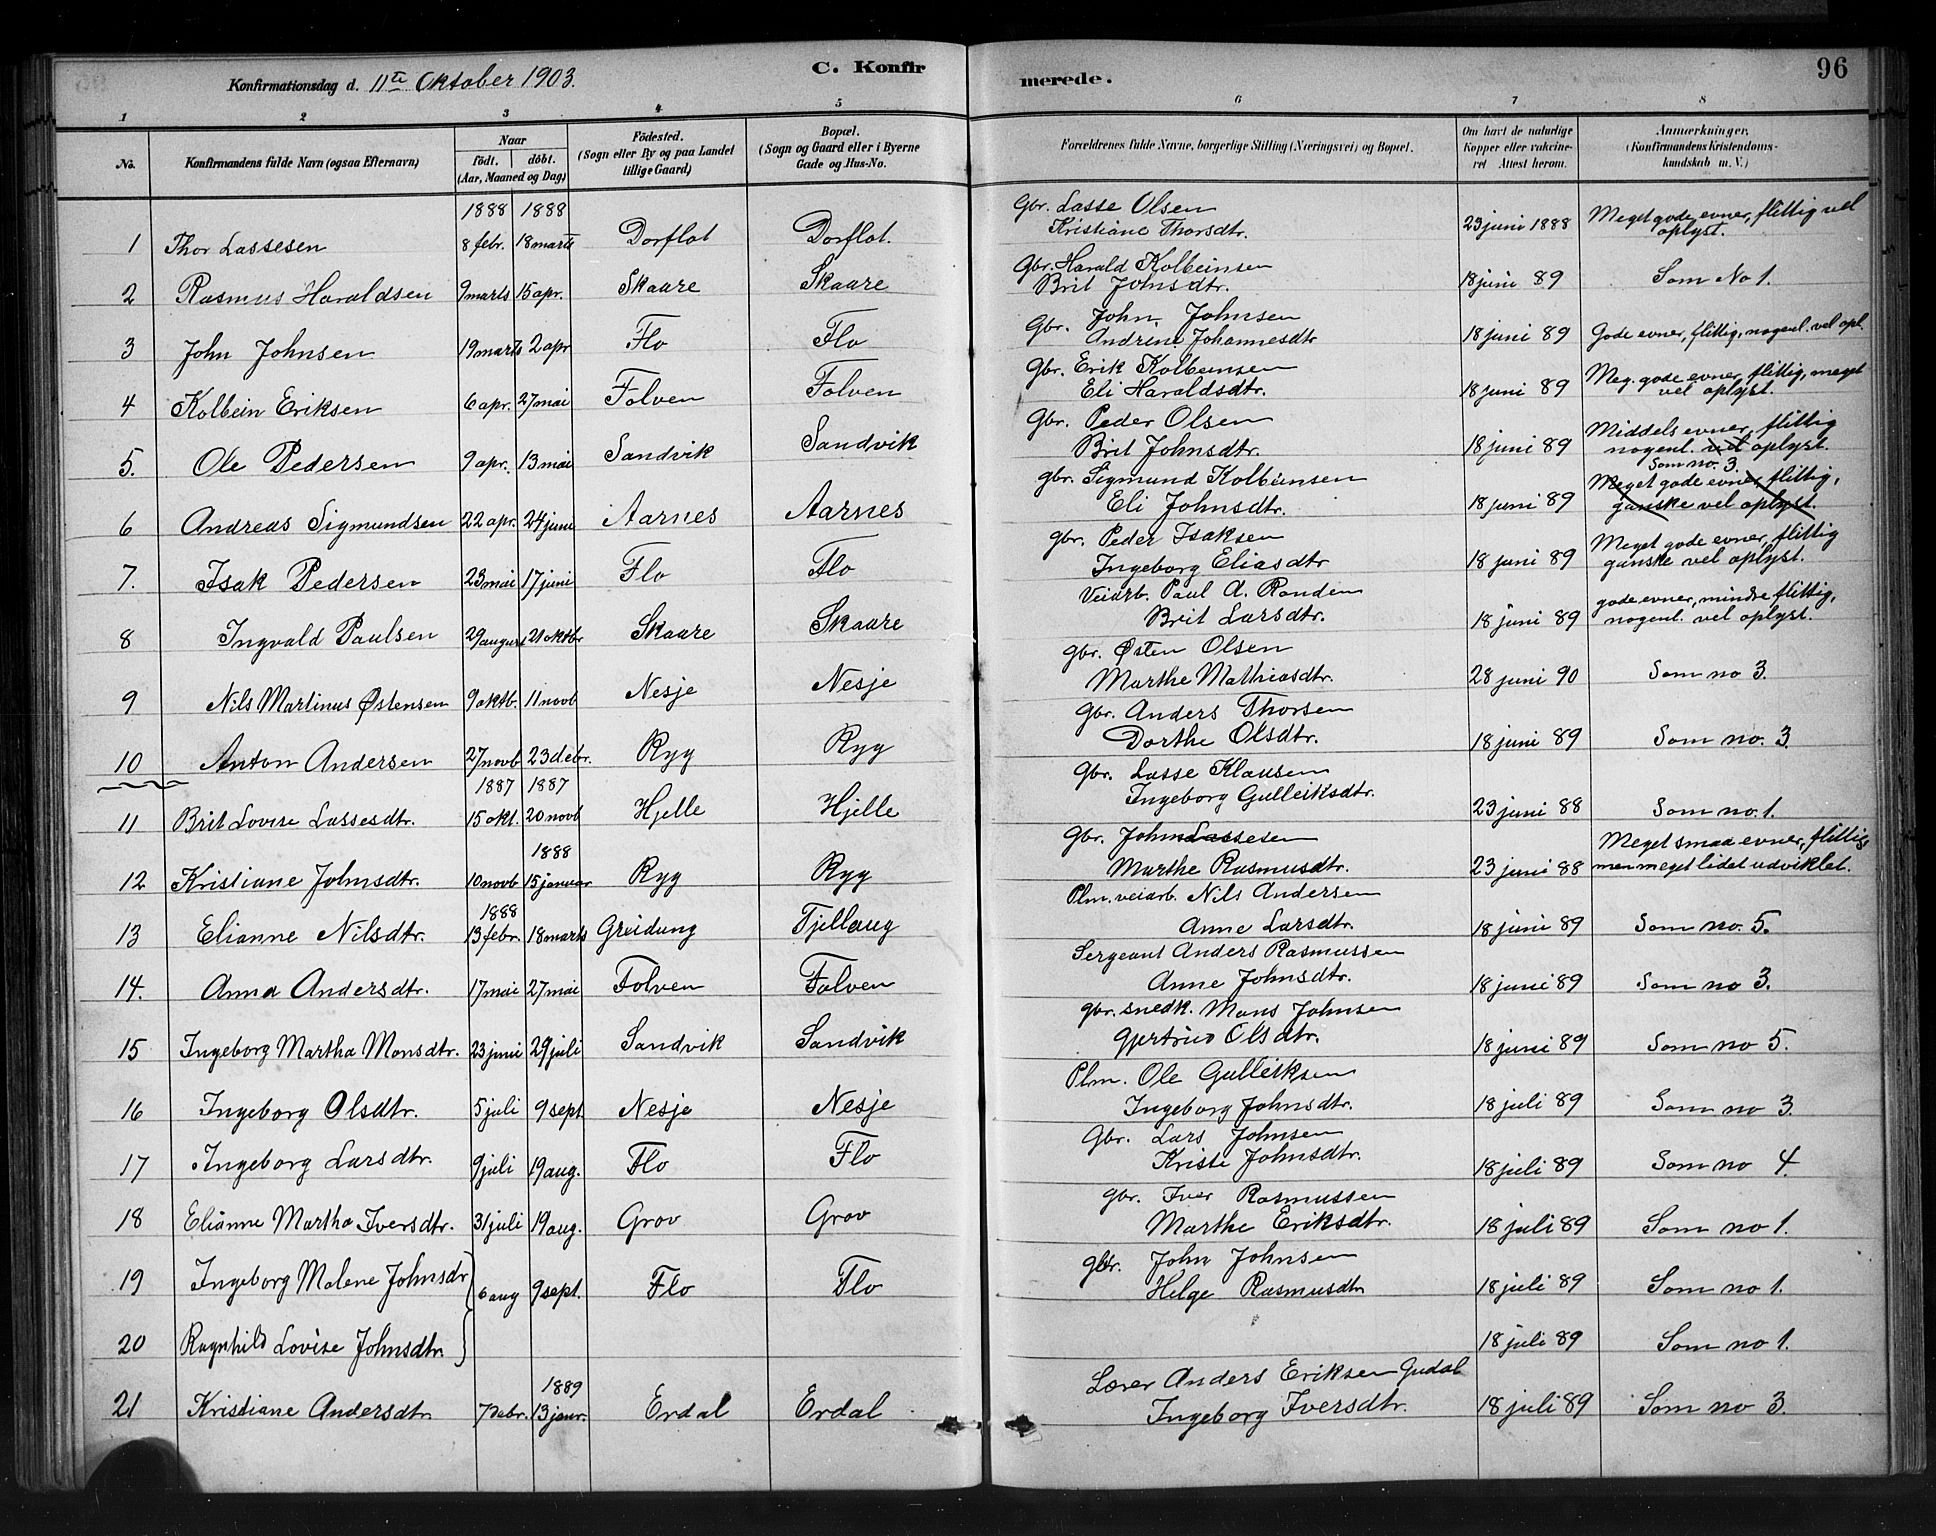 C. Konfirmerede.
96
Konfirmationsdag d. 11te Oktober 1903.
1 2 3 4 5 6 7 8
No. Konfirmandens fulde Navn (ogsaa Efternavn) Naar födt. döbt. (Aar, Maaned og Dag) Födested. (Sogn eller By og paa Landet tillige Gaard) Bopæl. (Sogn og Gaard eller i Byerne Gade og Hus-No. Forældrenes fulde Navne, borgerlige Stilling (Næringsvei) og Bopæl. Om havt de naturlige Kopper eller vakcineret Attest herom. Anmærkninger, (Konfirmandens Kristendomskundskab m. V.)
1888 1888
1 Thor Lassesen 8 febr. 18 marts Dorflot Dorflot. Gbr. Lasse Olsen Kristiane Thorsdtr. 23 juni 1888 Meget gode evner, flittig vel oplyst.
2 Rasmus Haraldsen 9 marts 15 apr. Skaare Skaare Gbr. Harald Kolbeinsen Brit Johnsdtr. 18 juni 89 Som No 1.
3 John Johnsen 19 marts 2 apr Flo Flo Gbr. John Johnsen Andrine Johannesdtr 18 juni 89 Gode evner, flittig, nogenl. vel opl.
4 Kolbein Eriksen 6 apr. 27 mai Folven Folven Gbr. Erik Kolbeinsen Eli Haraldsdtr. 18 juni 89 Meg. gode evner, flittig, meget vel oplyst.
5. Ole Pedersen 9 apr. 13 mai Sandvik Sandvik Gbr. Peder Olsen Brit Johnsdtr. 18 juni 89 Middels evner, flittig nogenl. vel oplyst.
6 Andreas Sigmundsen 22 apr. 24 juni Aarnes Aarnes gbr. Sigmund Kolbeinsen Eli Johnsdtr. 18 juni 89 Som no. 3. Meget gode evner, flittig, ganske vel oplyst.
7. Isak Pedersen 23 mai 17 juni Flo Flo gbr. Peder Isaksen Ingeborg Eliasdtr 18 juni 89 Meget gode evner, flittig ganske vel oplyst.
8 Ingvald Paulsen 29 august 21 oktbr Skaare Skaare Veiarb. Paul A. Randen Brit Larsdtr. 18 juni 89 gode evner, mindre flittig, nogenl. vel oplyst.
9 Nils Martinus Østensen 9 oktb. 11 novb Nesje Nesje gbr. Østen Olsen Marthe Mathiasdtr. 28 juni 90 Som no 3.
10 Anton Andersen 27 novb 23 debr. Ryg Ryg Gbr. Anders Thorsen Dorthe Olsdtr. 18 juni 89 Som no. 3.
1887 1887
11 Brit Lovise Lassesdtr. 15 okt. 20 novb Hjelle Hjelle Gbr. Lasse Klausen Ingeborg Gulleiksdtr. 23 juni 88 Som no. 1.
1888
12 Kristiane Johnsdtr. 10 novb 15 januar Ryg Ryg Gbr. John Lassesen Marthe Rasmusdtr. 23 juni 88 Meget smaa evner, flittig, men meget lidet udviklet.
1888
13 Elianne Nilsdtr. 13 febr. 18 marts Greidung Tjellaug Plm. veiarb. Nils Andersen Anne Larsdtr. 18 juni 89 Som no. 5.
14. Anna Andersdtr. 17 mai 27 mai Folven Folven Sergeant Anders Rasmussen Anne Johnsdtr. 18 juni 89 Som no 3.
15 Ingeborg Martha Monsdtr. 23 juni 29 juli Sandvik Sandvik gbr. snedk. Mons Johnsen Gjertrud Olsdtr. 18 juni 89 Som no 5.
16 Ingeborg Olsdtr. 5 juli 9 sept. Nesje Nesje Plm. Ole Gulleiksen Ingeborg Johnsdtr. 18 juli 89 Som no 3.
17 Ingeborg Larsdtr. 9 juli 19 aug. Flo Flo Gbr. Lars Johnsen Kriste Johnsdtr. 18 juli 89 Som no 4
18 Elianne Martha Iversdtr. 31 juli 19 aug. Grov Grov gbr. Iver Rasmussen Marthe Eriksdtr. 18 juli 89 Som no 1.
19 Ingeborg Malene Johnsdr 6 aug 9 sept. Flo Flo gbr. John Johnsen Helge Rasmusdtr 18 juli 89 Som no 1.
20 Ragnhild Lovise Johnsdtr. 18 juli 89 Som no 1.
1889
21 Kristiane Andersdtr 7 debr. 13 janr. Erdal Erdal Lærer Anders Eriksen Gjudal Ingeborg Iversdtr. 18 juli 89 Som no 3.